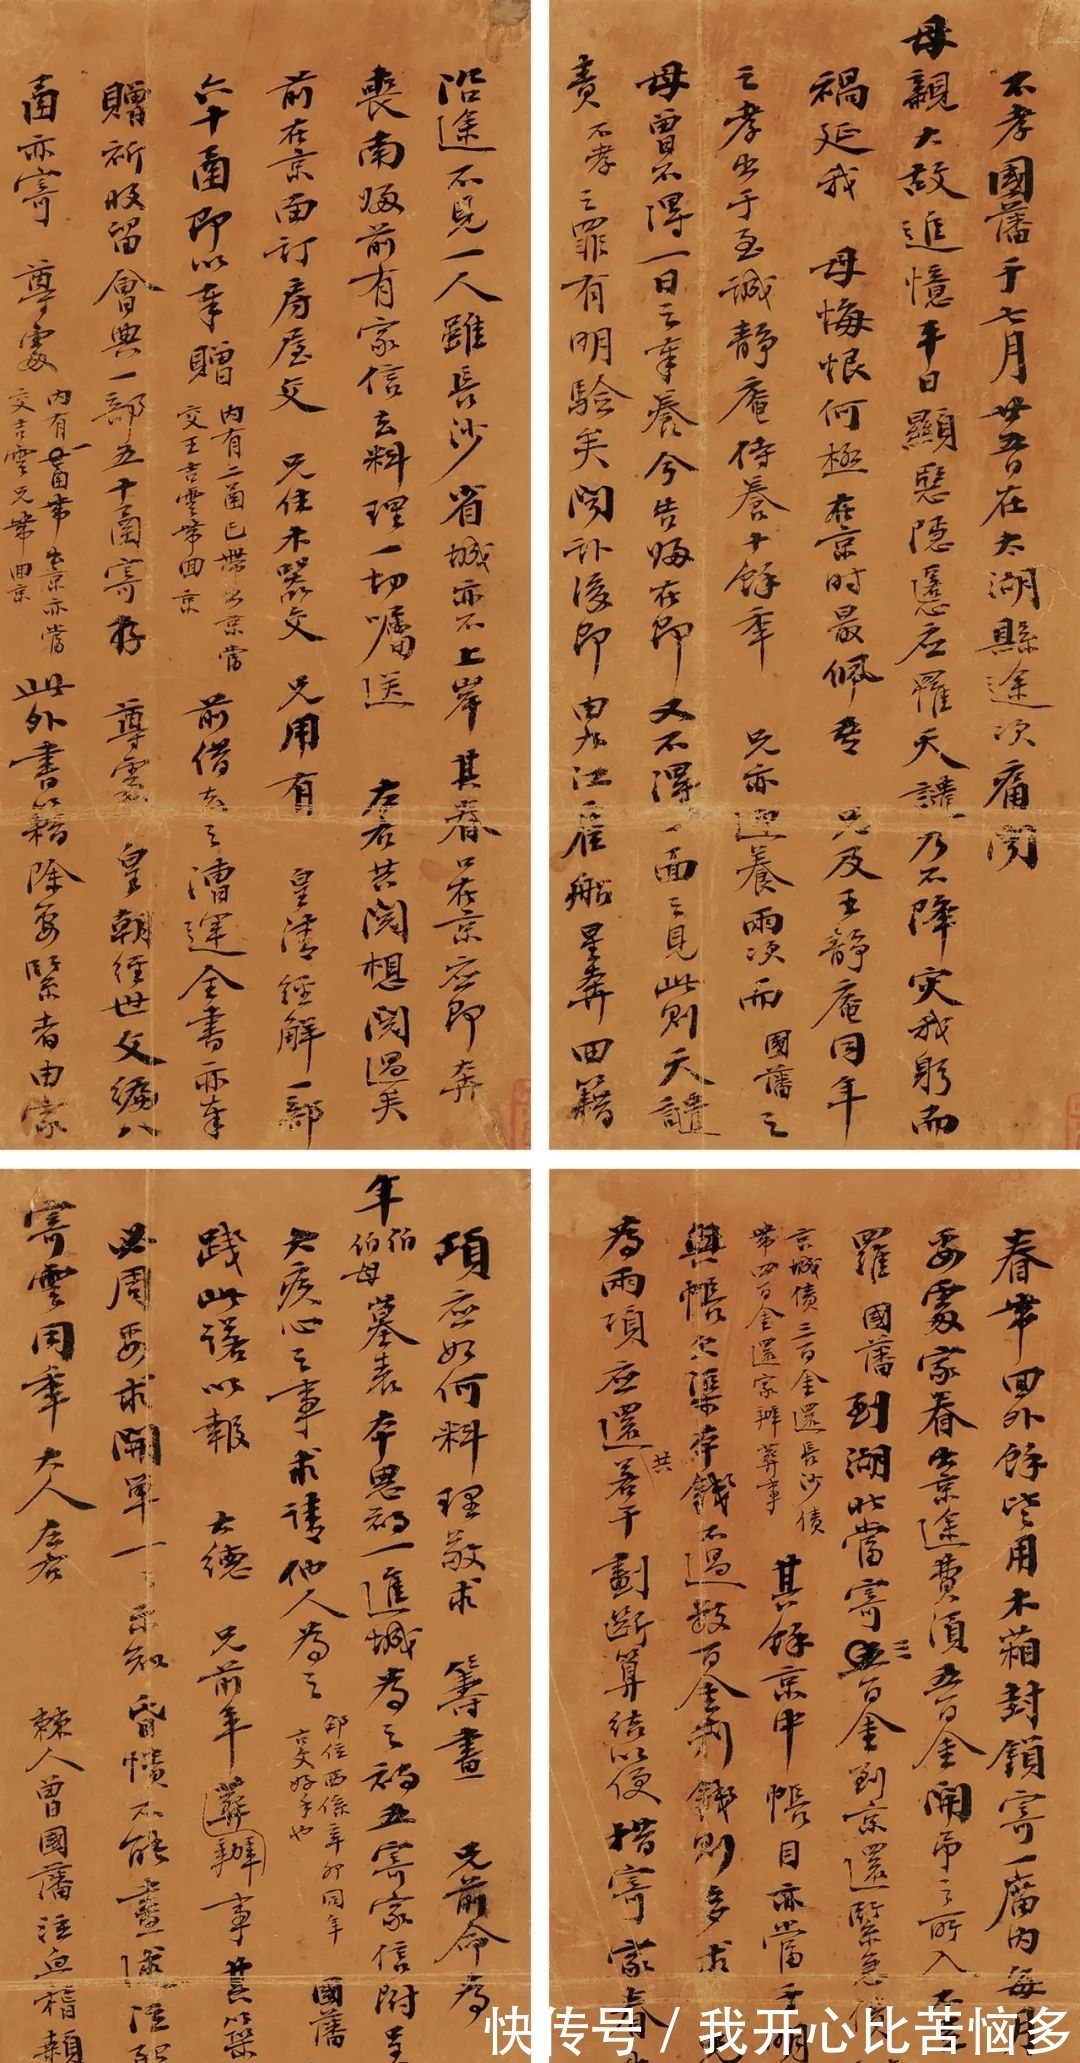 不孝國藩于七月廿五日在太湖縣途次痛聞
母親大故追憶平日顯愆隱慝應罹天譴乃不降灾我躬而
禍延我 母悔恨何極在京時最佩者 兄及王靜庵同年
之孝出于至誠靜庵侍養十餘年 兄亦迎養兩次而 國藩之
母曾不得一日之奉養今告歸在即又不得一面之見此則天譴
責 不孝 之罪有明驗矣聞訃後即由九江雇船星奔回籍
沿途不見一人雖長沙省城亦不上岸其眷口在京應即奔
喪南歸前有家信去料理一切囑送 左右共閱想閱過矣
前在京面訂房屋交 兄住木器交 兄用有 皇清經解一部
六十函即以奉贈 內有二函已帶出京當
交王吉雲帶回京 前借去之漕運全書亦奉
贈祈收留會典一部五十函寄存 尊處 皇朝經世文編八
函亦寄 尊處 內有一函帶出京亦當
交吉雲兄帶回京 此外書籍除要緊者由家
眷帶回外餘皆用木箱封鎖寄一廟內每月
要處家眷出京途費須五百金開弔之所入
羅 國藩到湖北當寄三百金到京還緊急債
京城債三百金還長沙債
帶四百金還家辦葬事 其餘京中帳目亦當于明
與帳欠渠本錢不過數百金利錢則多求 兄
為兩項應還共若干劃斷算結以便措寄家眷
項應如何料理敬求 籌畫 兄前命為
年伯
伯母墓表本思初一進城為之初五寄家信附呈
大疚心之事求請他人為之 邵位西係辛卯同年
古文好手也 國藩
踐此諾以報 大德 兄前年辦事甚以渠
必周要求開單一一示知昏憒不能盡
寄雲同年大人左右 棘人曾國藩泣血稽顙
快传号 / 我开心比苦恼多